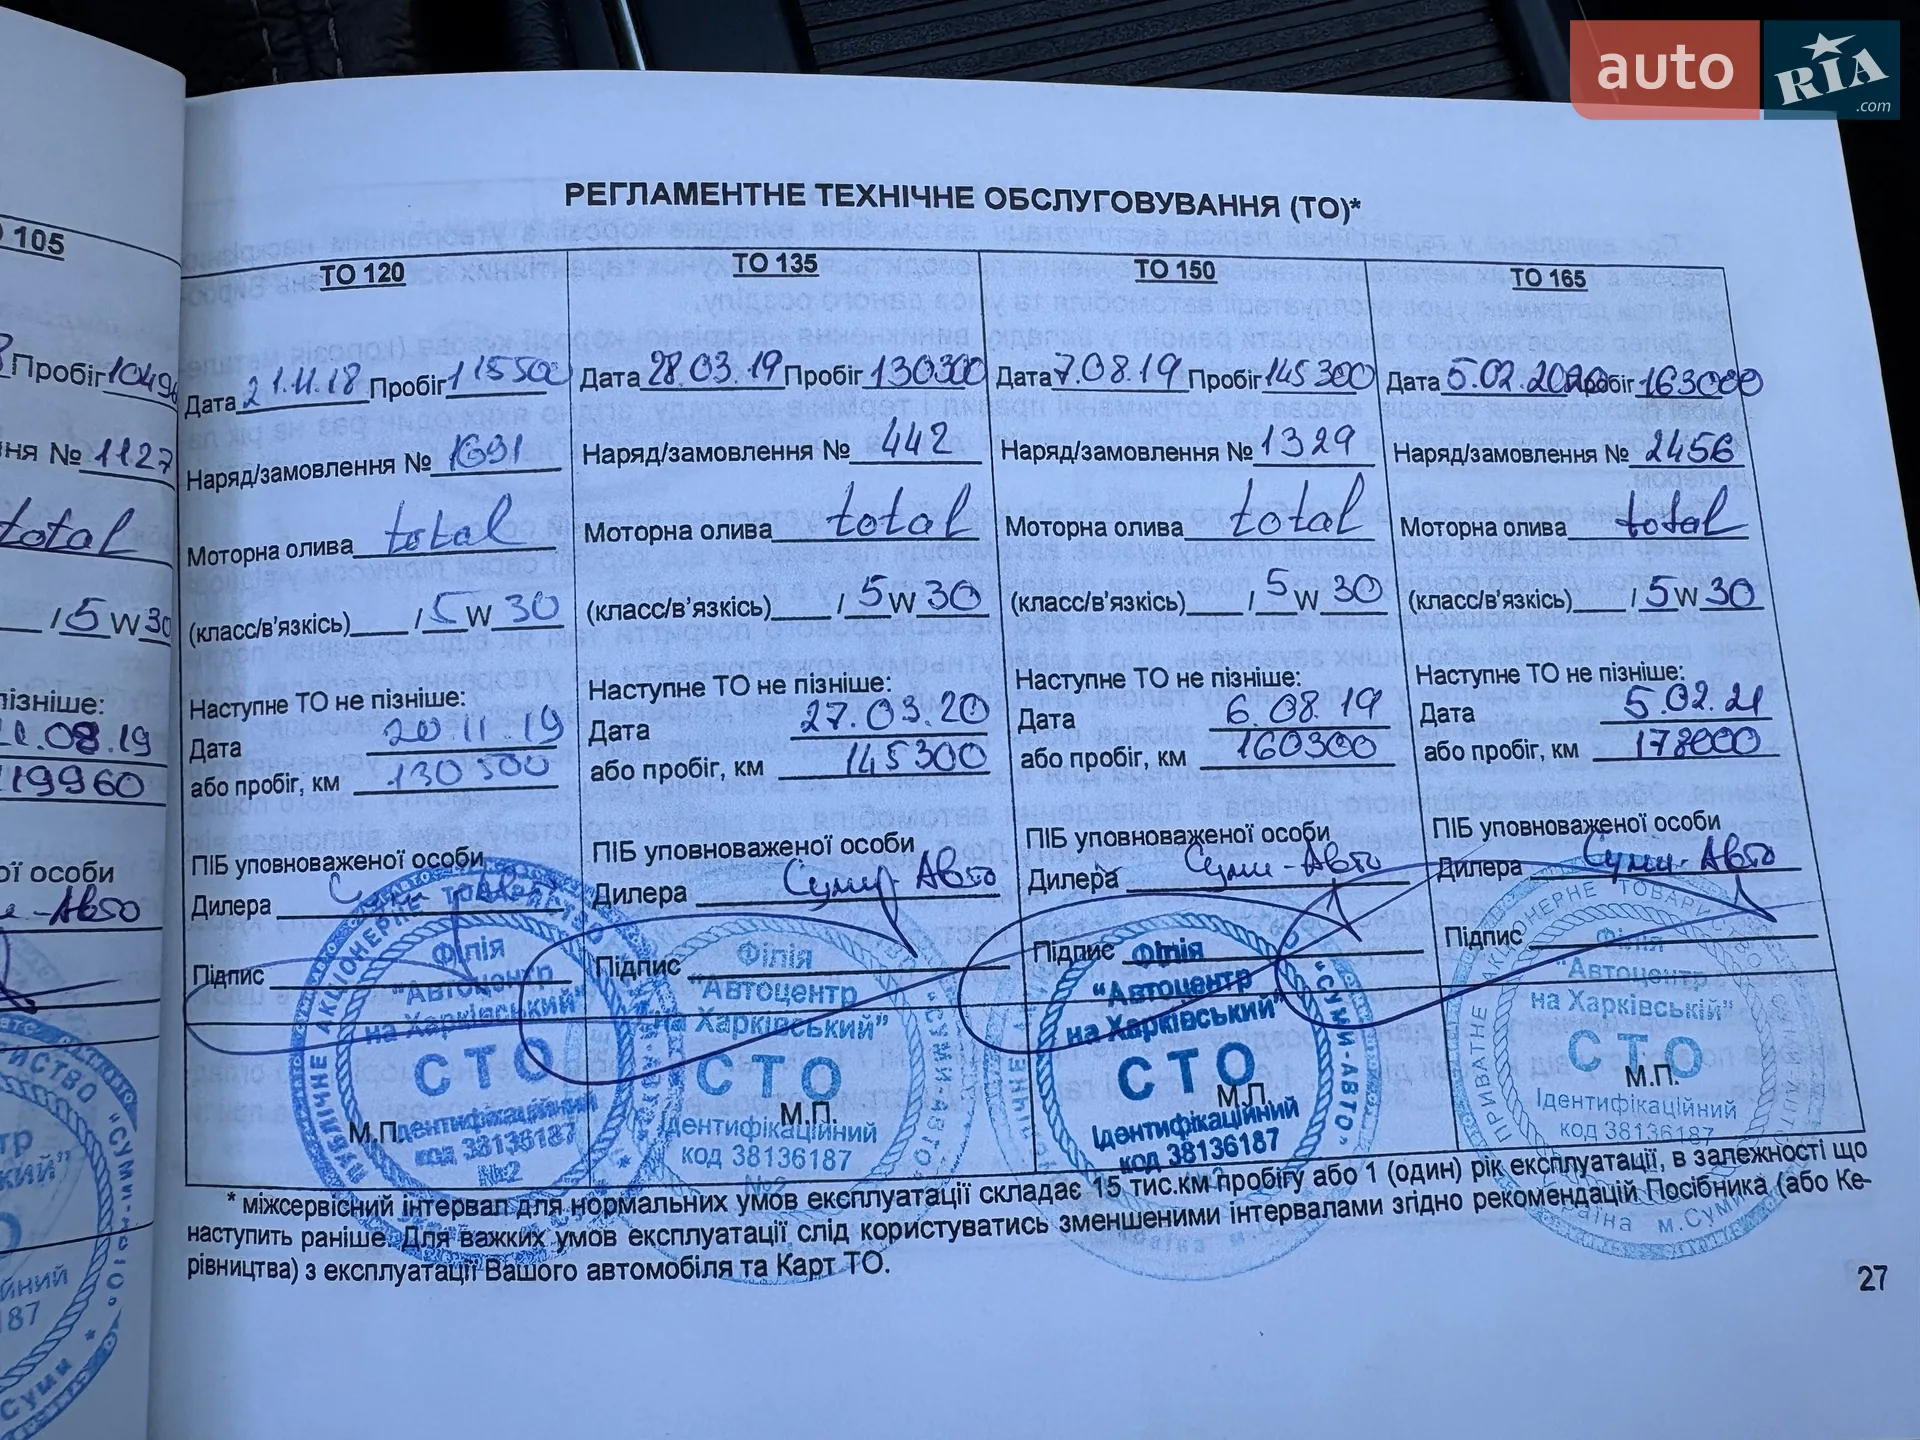 auto RIA.com
РЕГЛАМЕНТНЕ ТЕХНІЧНЕ ОБСЛУГОВУВАННЯ (ТО)*
105
Пробіг 10496
ня № 1127
total
/ 5 W 30
пізніше:
.08.19
119960
ої особи
и-Авто
ТО 120
Дата 21.11.18 Пробіг 115500
Наряд/замовлення № 1691
Моторна олива total
(класс/в'язкісь) / 5 W 30
Наступне ТО не пізніше:
Дата 20.11.19
або пробіг, км 130500
ПІБ уповноваженої особи
Дилера Суми-Авто
Підпис
М.П.
Філія
"Автоцентр
на Харківський"
СТО
Ідентифікаційний
код 38136187
№2
ТО 135
Дата 28.03.19 Пробіг 130300
Наряд/замовлення № 442
Моторна олива total
(класс/в'язкісь) / 5 W 30
Наступне ТО не пізніше:
Дата 27.03.20
або пробіг, км 145300
ПІБ уповноваженої особи
Дилера Суми-Авто
Підпис
М.П.
Філія
"Автоцентр
на Харківський"
СТО
Ідентифікаційний
код 38136187
№2
ТО 150
Дата 7.08.19 Пробіг 145300
Наряд/замовлення № 1329
Моторна олива total
(класс/в'язкісь) / 5 W 30
Наступне ТО не пізніше:
Дата 6.08.19
або пробіг, км 160300
ПІБ уповноваженої особи
Дилера Суми-Авто
Підпис
М.П.
Філія
"Автоцентр
на Харківський"
СТО
Ідентифікаційний
код 38136187
"СУМИ-АВТО"
ТО 165
Дата 5.02.2020 Пробіг 163000
Наряд/замовлення № 2456
Моторна олива total
(класс/в'язкісь) / 5 W 30
Наступне ТО не пізніше:
Дата 5.02.21
або пробіг, км 178000
ПІБ уповноваженої особи
Дилера Суми-Авто
Підпис
М.П.
ПРИВАТНЕ АКЦІОНЕРНЕ ТОВАРИСТВО
Філія
"Автоцентр
на Харківській"
СТО
Ідентифікаційний
код 38136187
* міжсервісний інтервал для нормальних умов експлуатації складає 15 тис.км пробігу або 1 (один) рік експлуатації, в залежності що
наступить раніше. Для важких умов експлуатації слід користуватись зменшеними інтервалами згідно рекомендацій Посібника (або Ке-
рівництва) з експлуатації Вашого автомобіля та Карт ТО.
27